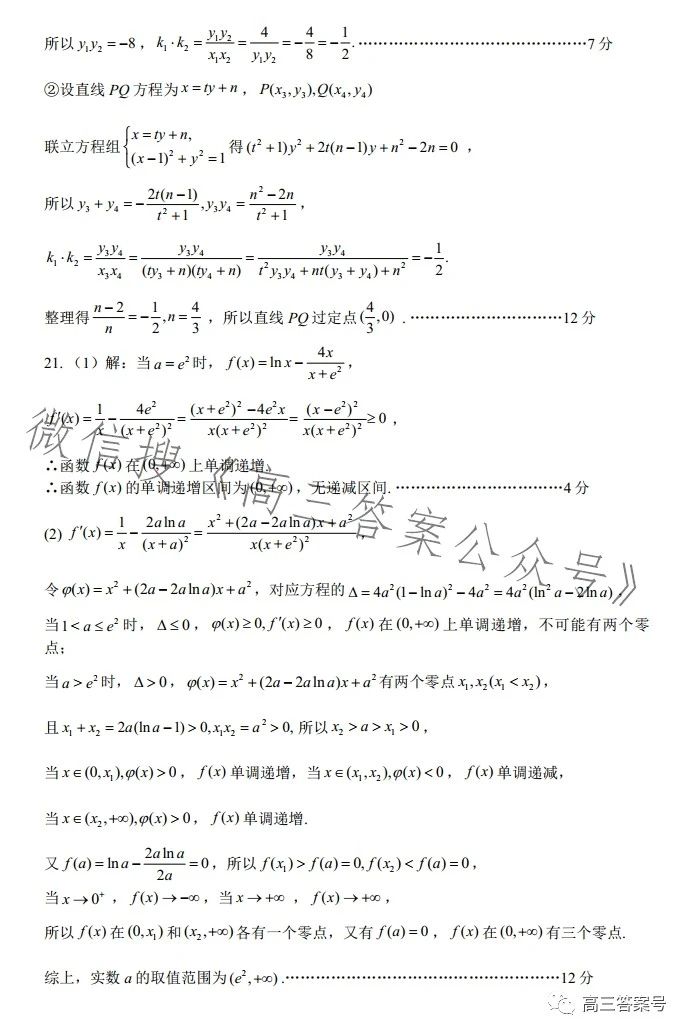 所以 y₁y₂ = −8，k₁·k₂ = y₁y₂/(x₁x₂) = 4/(y₁y₂) = −4/8 = −1/2. ………………………………………7 分
②设直线 PQ 方程为 x = ty + n，P(x₃, y₃), Q(x₄, y₄)
联立方程组 {x = ty + n, (x−1)² + y² = 1 得 (t² + 1)y² + 2t(n−1)y + n² − 2n = 0，
所以 y₃ + y₄ = −2t(n−1)/(t² + 1), y₃y₄ = (n² − 2n)/(t² + 1)，
k₁·k₂ = y₃y₄/(x₃x₄) = y₃y₄/((ty₃ + n)(ty₄ + n)) = y₃y₄/(t²y₃y₄ + nt(y₃ + y₄) + n²) = −1/2.
整理得 (n−2)/n = −1/2, n = 4/3，所以直线 PQ 过定点 (4/3, 0) . …………………………12 分
21.（1）解：当 a = e² 时，f(x) = ln x − 4x/(x + e²)，
f′(x) = 1/x − 4e²/(x + e²)² = ((x + e²)² − 4e²x)/(x(x + e²)²) = (x − e²)²/(x(x + e²)²) ≥ 0，
∴函数 f(x) 在 (0,+∞) 上单调递增、
∴函数 f(x) 的单调递增区间为 (0,+∞)，无递减区间. ……………………………4 分
(2) f′(x) = 1/x − 2a ln a/(x + a)² = (x² + (2a − 2a ln a)x + a²)/(x(x + e²)²)，
令 φ(x) = x² + (2a − 2a ln a)x + a²，对应方程的 Δ = 4a²(1 − ln a)² − 4a² = 4a²(ln² a − 2 ln a)，
当 1 < a ≤ e² 时，Δ ≤ 0，φ(x) ≥ 0, f′(x) ≥ 0，f(x) 在 (0,+∞) 上单调递增，不可能有两个零
点；
当 a > e² 时，Δ > 0，φ(x) = x² + (2a − 2a ln a)x + a² 有两个零点 x₁, x₂ (x₁ < x₂)，
且 x₁ + x₂ = 2a(ln a − 1) > 0, x₁x₂ = a² > 0, 所以 x₂ > a > x₁ > 0，
当 x ∈ (0, x₁), φ(x) > 0，f(x) 单调递增，当 x ∈ (x₁, x₂), φ(x) < 0，f(x) 单调递减，
当 x ∈ (x₂, +∞), φ(x) > 0，f(x) 单调递增.
又 f(a) = ln a − 2a ln a/(2a) = 0，所以 f(x₁) > f(a) = 0, f(x₂) < f(a) = 0，
当 x → 0⁺，f(x) → −∞，当 x → +∞，f(x) → +∞，
所以 f(x) 在 (0, x₁) 和 (x₂, +∞) 各有一个零点，又有 f(a) = 0，f(x) 在 (0,+∞) 有三个零点.
综上，实数 a 的取值范围为 (e², +∞) .………………………………………………12 分
微信搜《高三答案公众号》
高三答案号